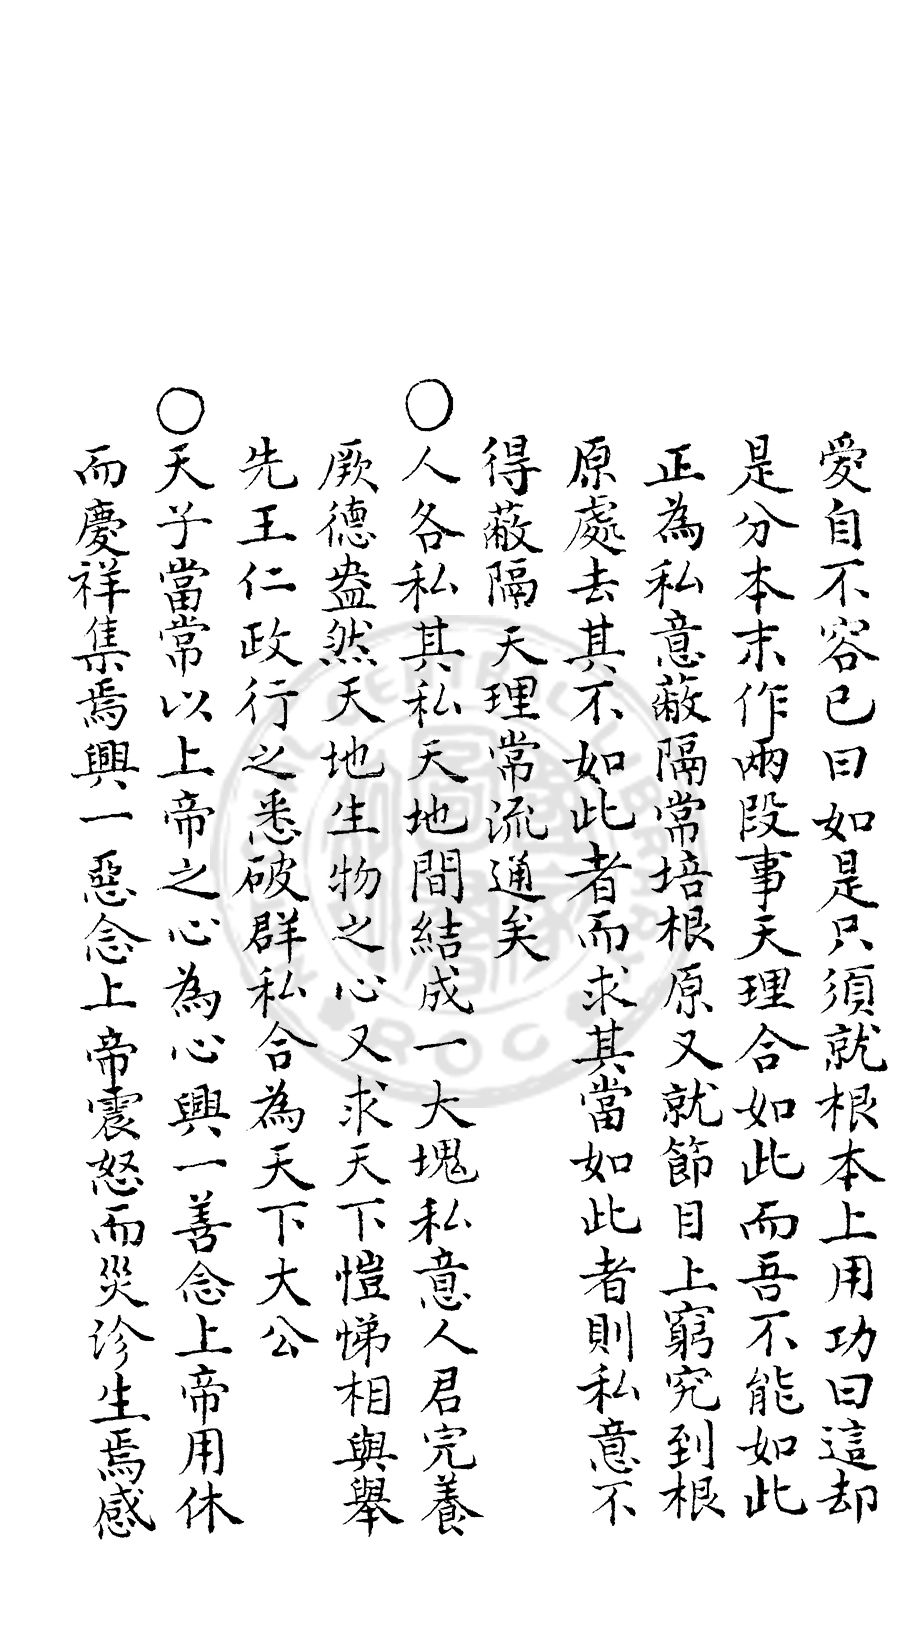 愛自不容已曰如是只須就根本上用功曰這却
是分本末作兩段事天理合如此而吾不能如此
正為私意蔽隔當培根原又就節目上窮究到根
原處去其不如此者而求其當如此者則私意不
得蔽隔天理常流通矣
○人各私其私天地間結成一大塊私意人君完養
厥德盎然天地生物之心又求天下愷悌相與舉
先王仁政行之悉破群私合為天下大公
○天子當常以上帝之心為心興一善念上帝用休
而慶祥集焉興一惡念上帝震怒而災沴生焉感
NATIONAL CENTRAL LIBRARY
R.O.C